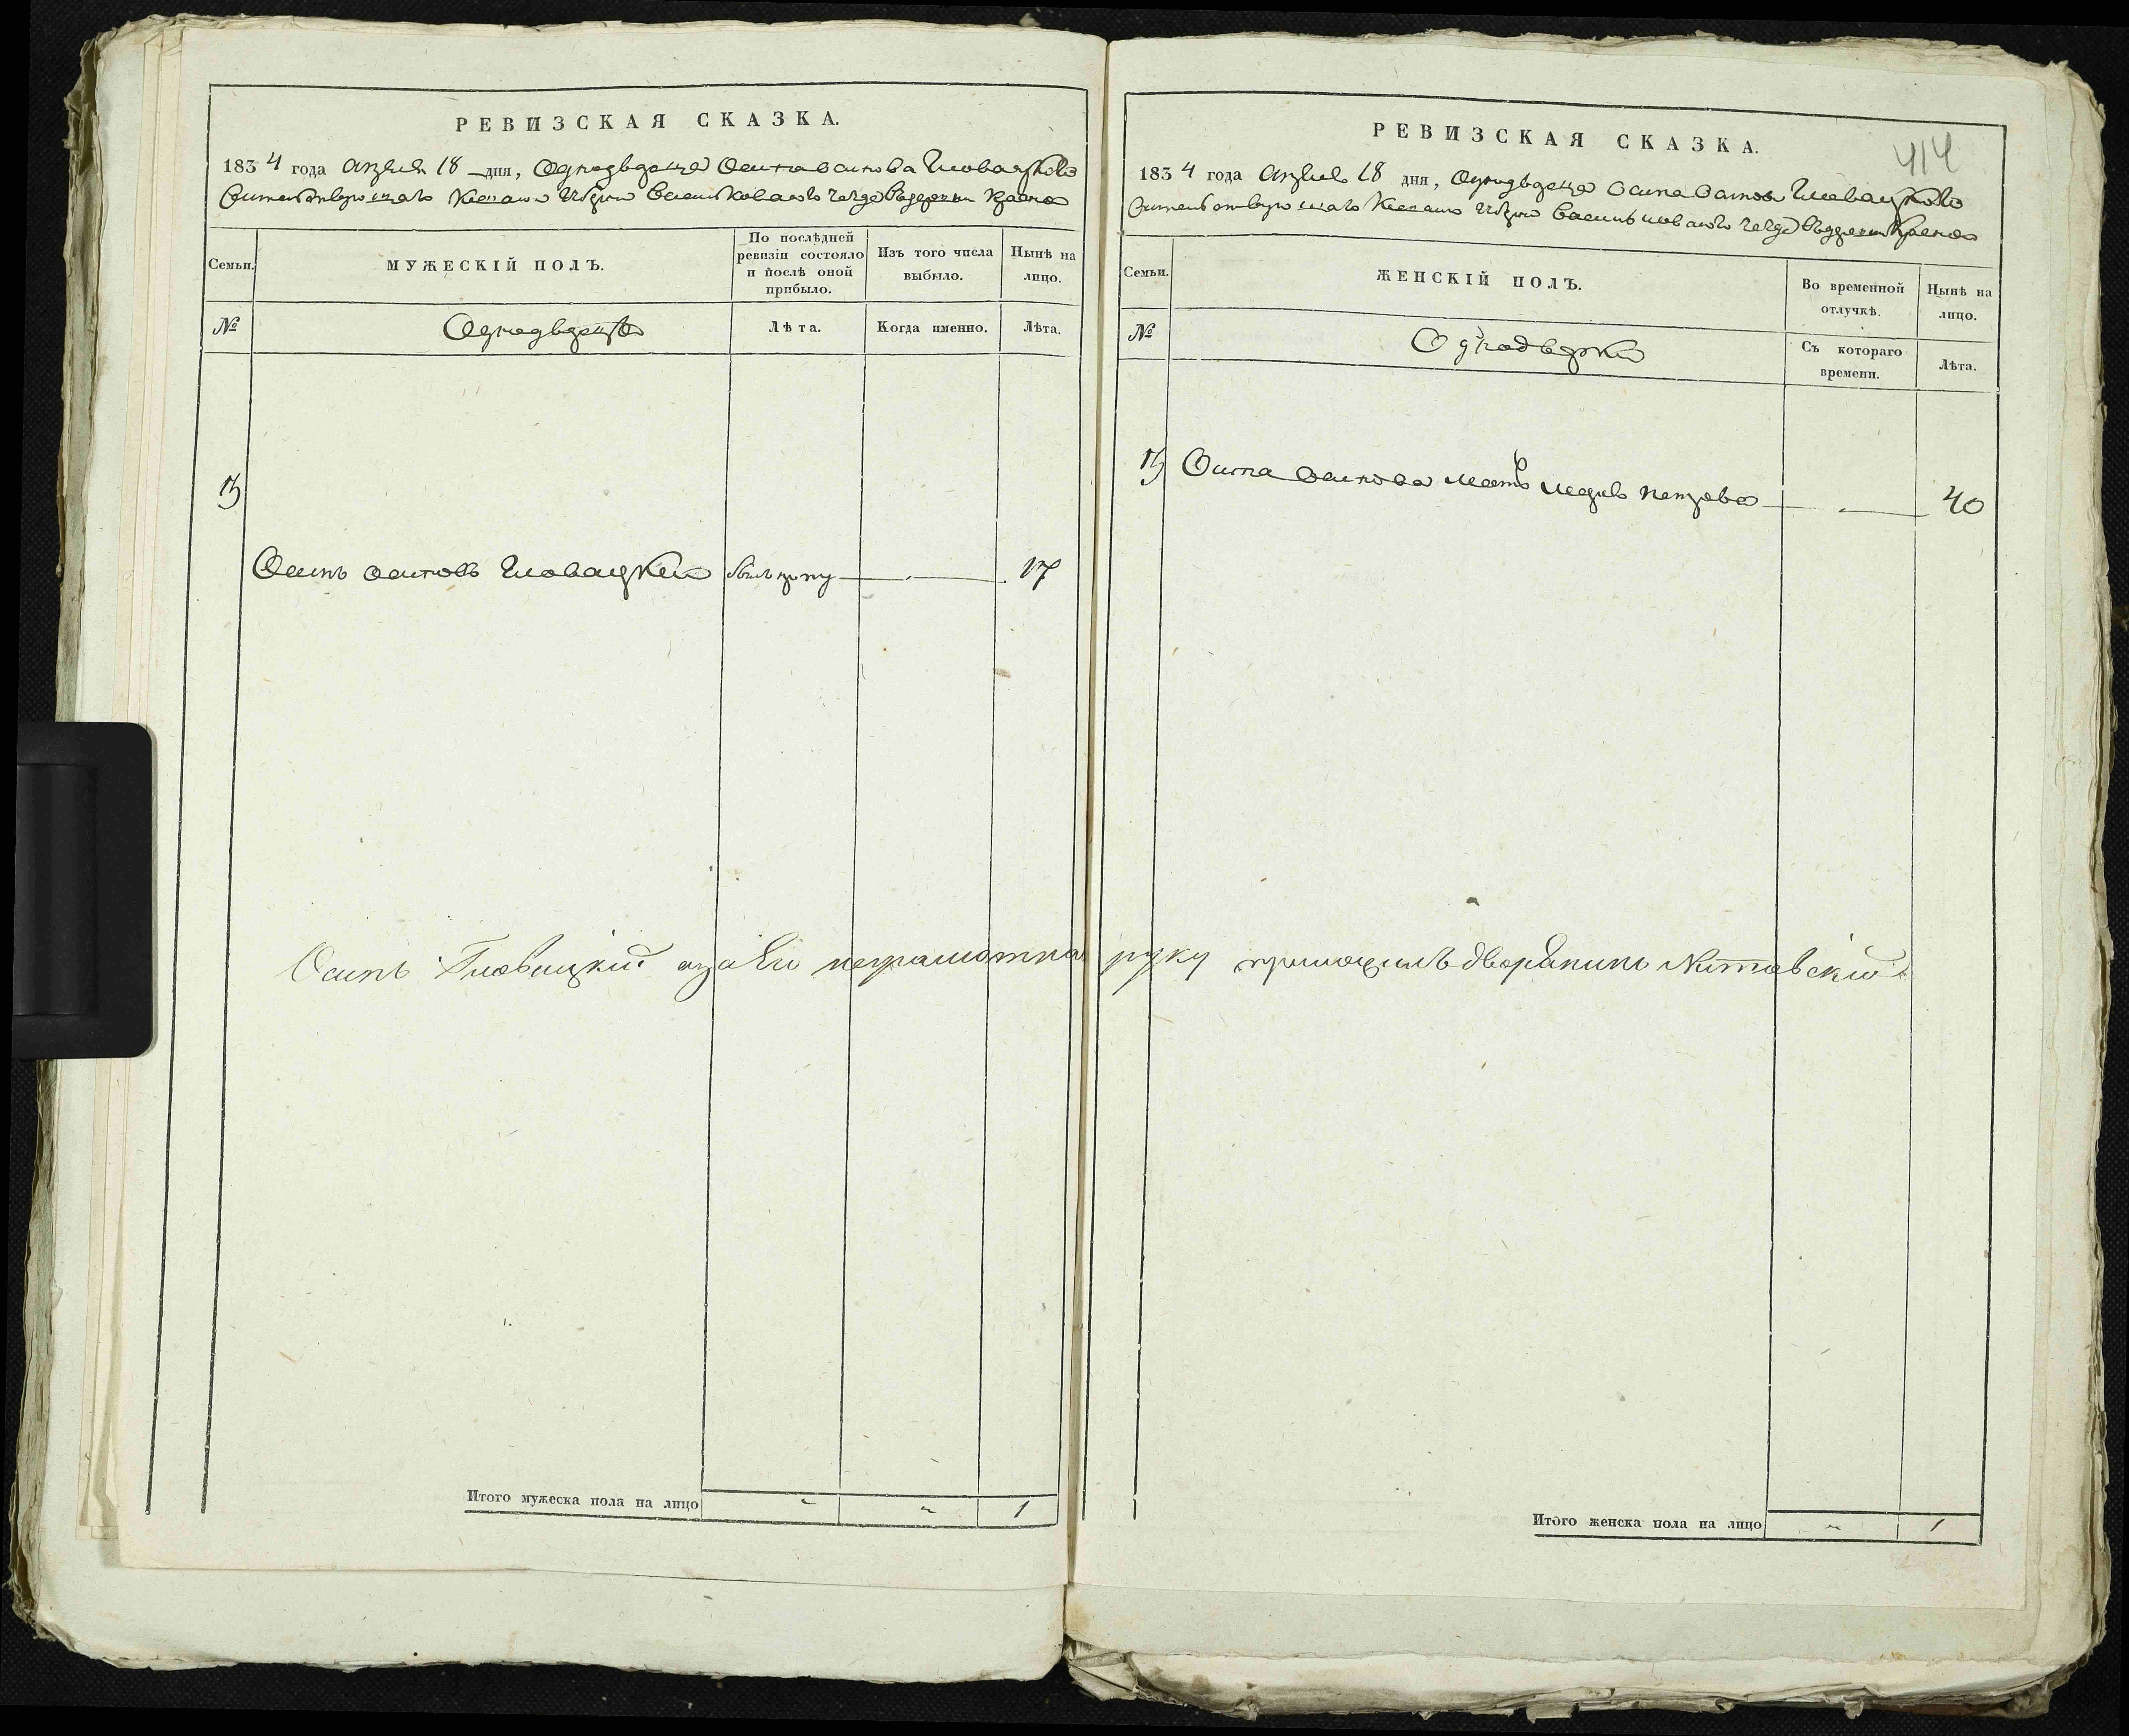 РЕВИЗСКАЯ СКАЗКА.
1834 года Апреля 18 дня, Однодворца Осипа Осипова Гловацкого
Жительствующаго Киевской Губернии Васильковского уезда в деревни
Семьи. МУЖЕСКІЙ ПОЛЪ. По послѣдней ревизіи состояло и послѣ оной прибыло. Изъ того числа выбыло. Нынѣ на лицо.
№ Однодворцы Лѣта. Когда именно. Лѣта.
Осипъ Осиповъ Гловацкий 17
Осипъ Гловацкий а за его неграмотно
Итого мужеска пола на лицо " " 1
414
РЕВИЗСКАЯ СКАЗКА.
1834 года Апреля 18 дня, Однодворца Осипа Осипова Гловацкого
Жительствующаго Киевской Губернии Васильковского уезда в деревни
Семьи. ЖЕНСКІЙ ПОЛЪ. Во временной отлучкѣ. Нынѣ на лицо.
№ Однодворки Съ котораго времени. Лѣта.
Осипа Осипова мать Петрова 40
руку приложилъ дворянинъ
Итого женска пола на лицо " 1